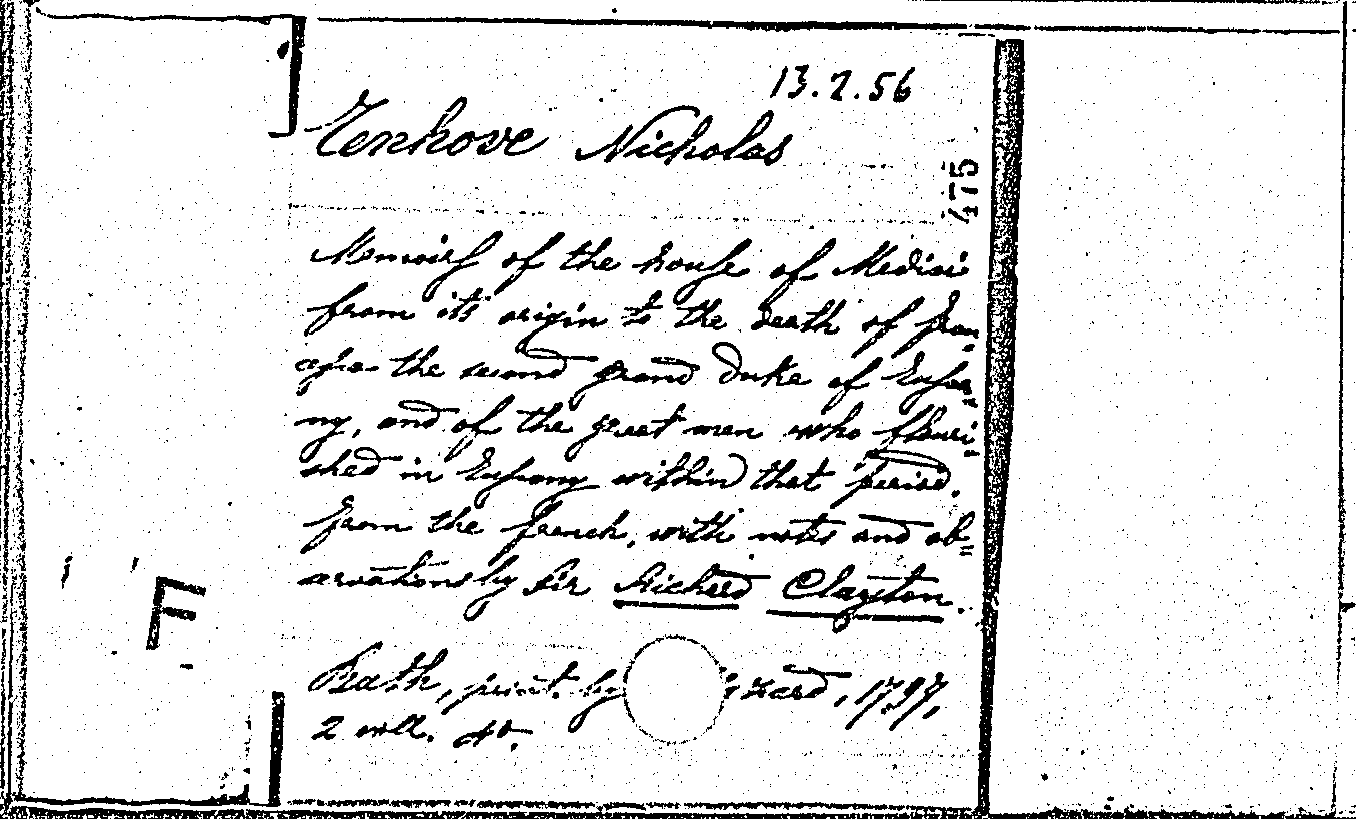 13.2.56
Tenhove Nicholas
475
Memoirs of the house of Medici
from its origin to the death of Fran=
cesco the second grand Duke of Tusca=
ny, and of the great men who flouri=
shed in Tuscany within that period.
From the french, with notes and ob=
servations by Sir Richard Clayton.
F
Bath, print. by zard, 1797,
2 voll. 4o.